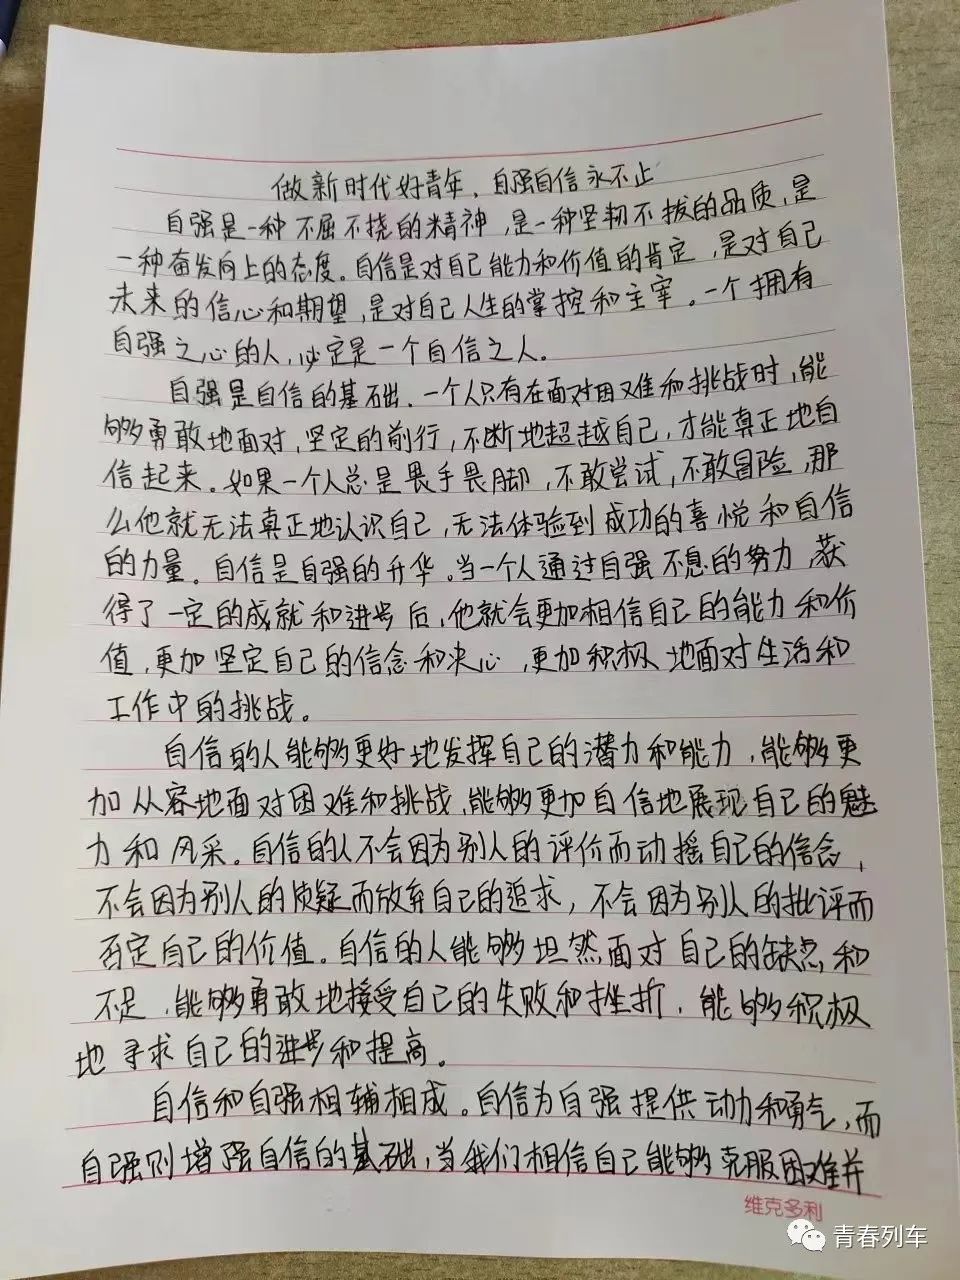 做新时代好青年、自强自信永不止
自强是一种不屈不挠的精神，是一种坚韧不拔的品质，是
一种奋发向上的态度。自信是对自己能力和价值的肯定，是对自己
未来的信心和期望，是对自己人生的掌控和主宰。一个拥有
自强之心的人，必定是一个自信之人。
自强是自信的基础。一个人只有在面对困难和挑战时，能
够勇敢地面对，坚定的前行，不断地超越自己，才能真正地自
信起来。如果一个人总是畏手畏脚，不敢尝试，不敢冒险，那
么他就无法真正地认识自己，无法体验到成功的喜悦和自信
的力量。自信是自强的升华。当一个人通过自强不息的努力，获
得了一定的成就和进步后，他就会更加相信自己的能力和价
值，更加坚定自己的信念和决心，更加积极地面对生活和
工作中的挑战。
自信的人能够更好地发挥自己的潜力和能力，能够更
加从容地面对困难和挑战，能够更加自信地展现自己的魅
力和风采。自信的人不会因为别人的评价而动摇自己的信念，
不会因为别人的质疑而放弃自己的追求，不会因为别人的批评而
否定自己的价值。自信的人能够坦然面对自己的缺点和
不足，能够勇敢地接受自己的失败和挫折，能够积极
地寻求自己的进步和提高。
自信和自强相辅相成。自信为自强提供动力和勇气，而
自强则增强自信的基础，当我们相信自己能够克服困难并
维克多利
青春列车